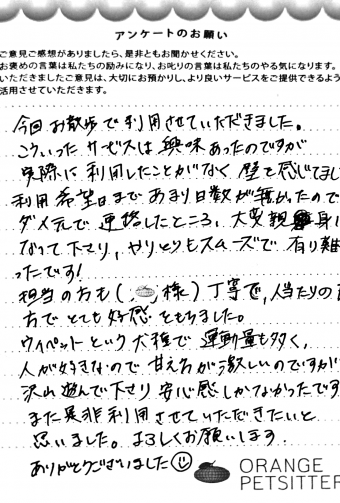 アンケートのお願い
ご意見ご感想がありましたら、是非ともお聞かせください。
お褒めの言葉は私たちの励みになり、お叱りの言葉は私たちのやる気になります。
いただきましたご意見は、大切にお預かりし、より良いサービスをご提供できるよう
活用させていただきます。
今回お散歩で利用させていただきました。
こういったサービスは興味あったのですが
実際に利用したことがなく壁を感じてまし
利用希望日まであまり日数が無かったので
ダメ元で連絡したところ、大変親身
なって下さり、やりとりもスムーズで有り難
ったです!
担当のおも(様)丁寧で、人当たりの
方でとても好感をもちました。
ウィペットという犬種で運動量も多く、
人が好きなので甘え方が激しいのですが
沢山遊んで下さり安心感しかなかったです
また是非利用させていただきたいと
思いました。よろしくお願いします
ありがとうございました
ORANGE
PETSITTER